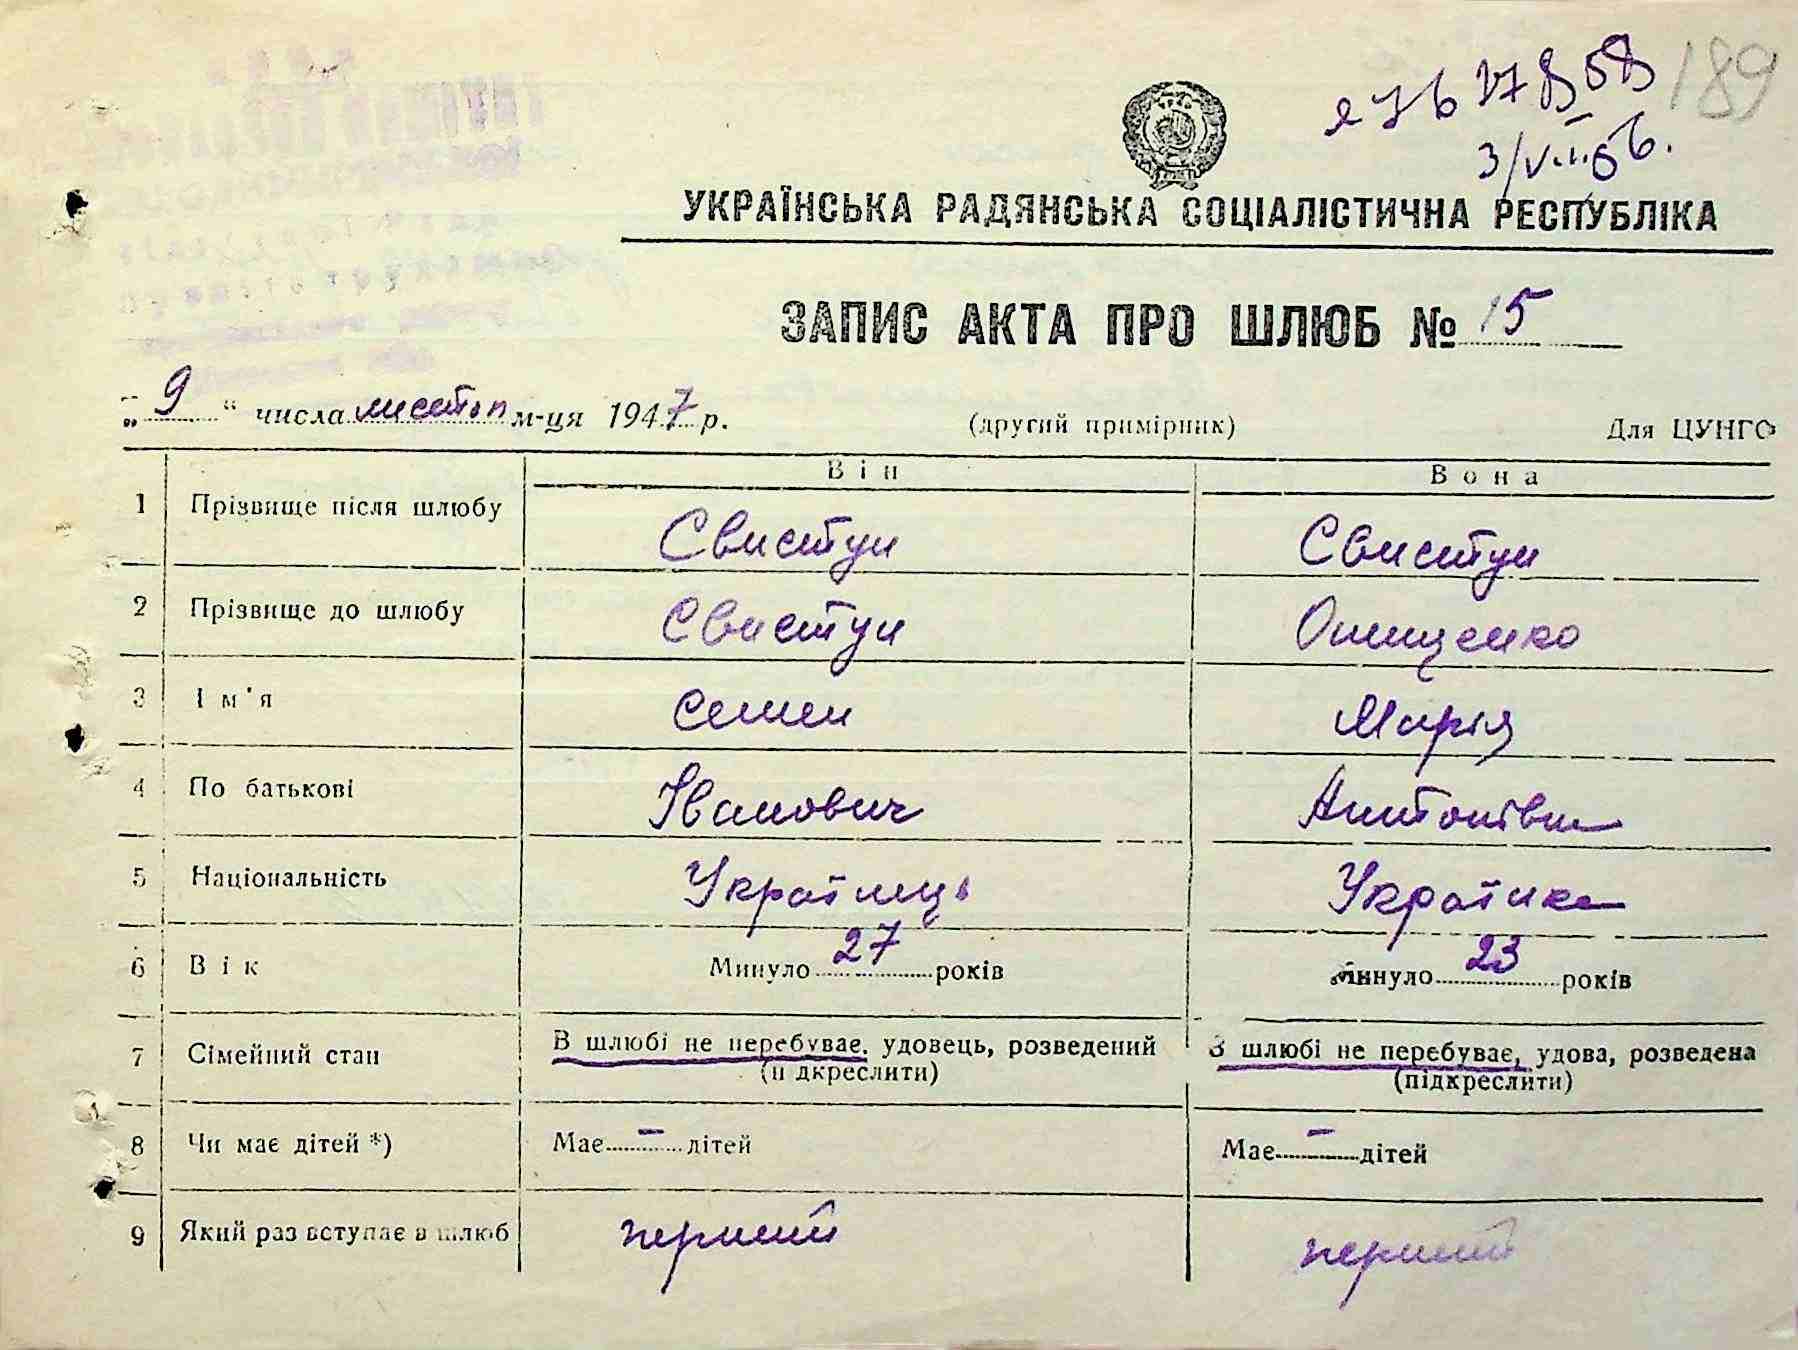 189
3/VIII 56.
УКРАЇНСЬКА РАДЯНСЬКА СОЦІАЛІСТИЧНА РЕСПУБЛІКА
ЗАПИС АКТА ПРО ШЛЮБ № 15
„ 9 “ числа листоп м-ця 1947 р. (другий примірник) Для ЦУНГО
Він Вона
1 Прізвище після шлюбу Свистун Свистун
2 Прізвище до шлюбу Свистун Онищенко
3 Ім'я Семен Марія
4 По батькові Іванович Антонівна
5 Національність Українець Українка
6 Вік Минуло 27 років Минуло 23 років
7 Сімейний стан В шлюбі не перебуває, удовець, розведений В шлюбі не перебуває, удова, розведена
(підкреслити) (підкреслити)
8 Чи має дітей *) Має – дітей Має – дітей
9 Який раз вступає в шлюб перший перший